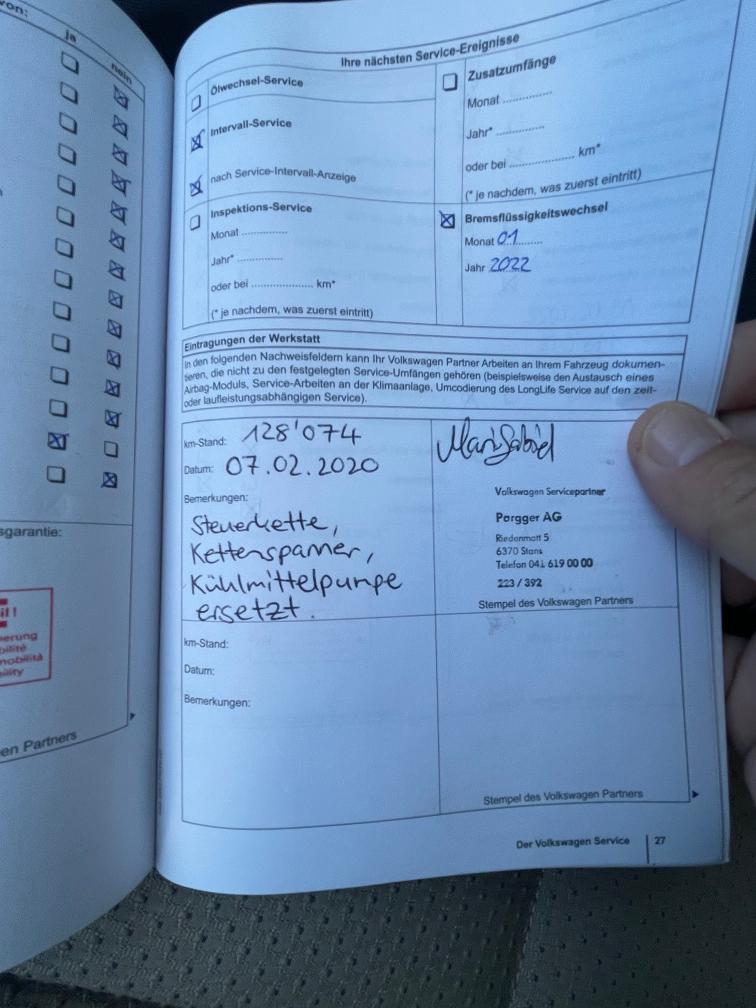 von:
ja
nein
sgarantie:
il !
erung
bilité
mobilità
ility
en Partners
Ihre nächsten Service-Ereignisse
Ölwechsel-Service
Intervall-Service
nach Service-Intervall-Anzeige
Inspektions-Service
Monat ...............
Jahr* ...............
oder bei ..................... km*
(* je nachdem, was zuerst eintritt)
Zusatzumfänge
Monat ................
Jahr* ...............
oder bei ..................... km*
(* je nachdem, was zuerst eintritt)
Bremsflüssigkeitswechsel
Monat 01
Jahr 2022
Eintragungen der Werkstatt
In den folgenden Nachweisfeldern kann Ihr Volkswagen Partner Arbeiten an Ihrem Fahrzeug dokumen-
tieren, die nicht zu den festgelegten Service-Umfängen gehören (beispielsweise den Austausch eines
Airbag-Moduls, Service-Arbeiten an der Klimaanlage, Umcodierung des LongLife Service auf den zeit-
oder laufleistungsabhängigen Service).
km-Stand: 128'074
Datum: 07.02.2020
Bemerkungen:
Steuerkette,
Kettenspanner,
Kühlmittelpumpe
ersetzt.
Volkswagen Servicepartner
Pargger AG
Riedenmatt 5
6370 Stans
Telefon 041 619 00 00
223 / 392
Stempel des Volkswagen Partners
km-Stand:
Datum:
Bemerkungen:
Stempel des Volkswagen Partners
Der Volkswagen Service 27